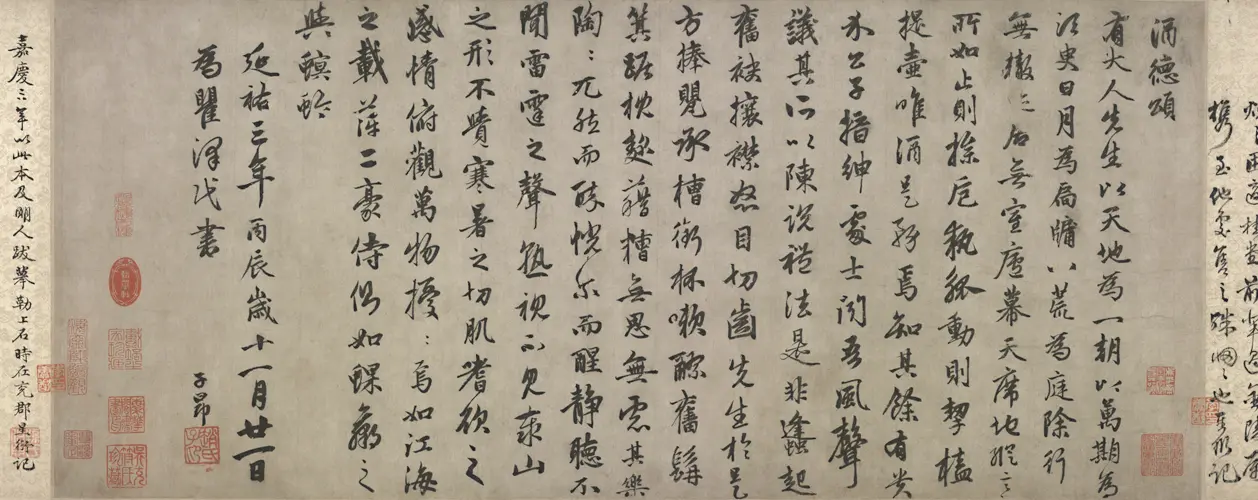 酒德頌
有大人先生以天地為一朝以萬期為
須臾日月為扃牖八荒為庭除行
無轍迹居無室廬幕天席地縱意
所如止則操巵執觚動則挈榼
提壺唯酒是務焉知其餘有貴
介公子搢紳處士聞吾風聲
議其所以陳說禮法是非蜂起
奮袂攘襟怒目切齒先生於是
方捧甖承槽銜杯嗽醪奮髯
箕踞枕麴藉糟無思無慮其樂
陶〻兀然而醉怳尔而醒靜聽不
聞雷霆之聲孰視不見泰山
之形不覺寒暑之切肌嗜欲之
感情俯觀萬物擾〻焉如江海
之載萍二豪侍側如蜾蠃之
與螟蛉
延祐三年丙辰歲十一月廿一日
為瞿澤民書
子昂
嘉慶三年以此本及明人跋摹勒上石時在兗郡星衍記